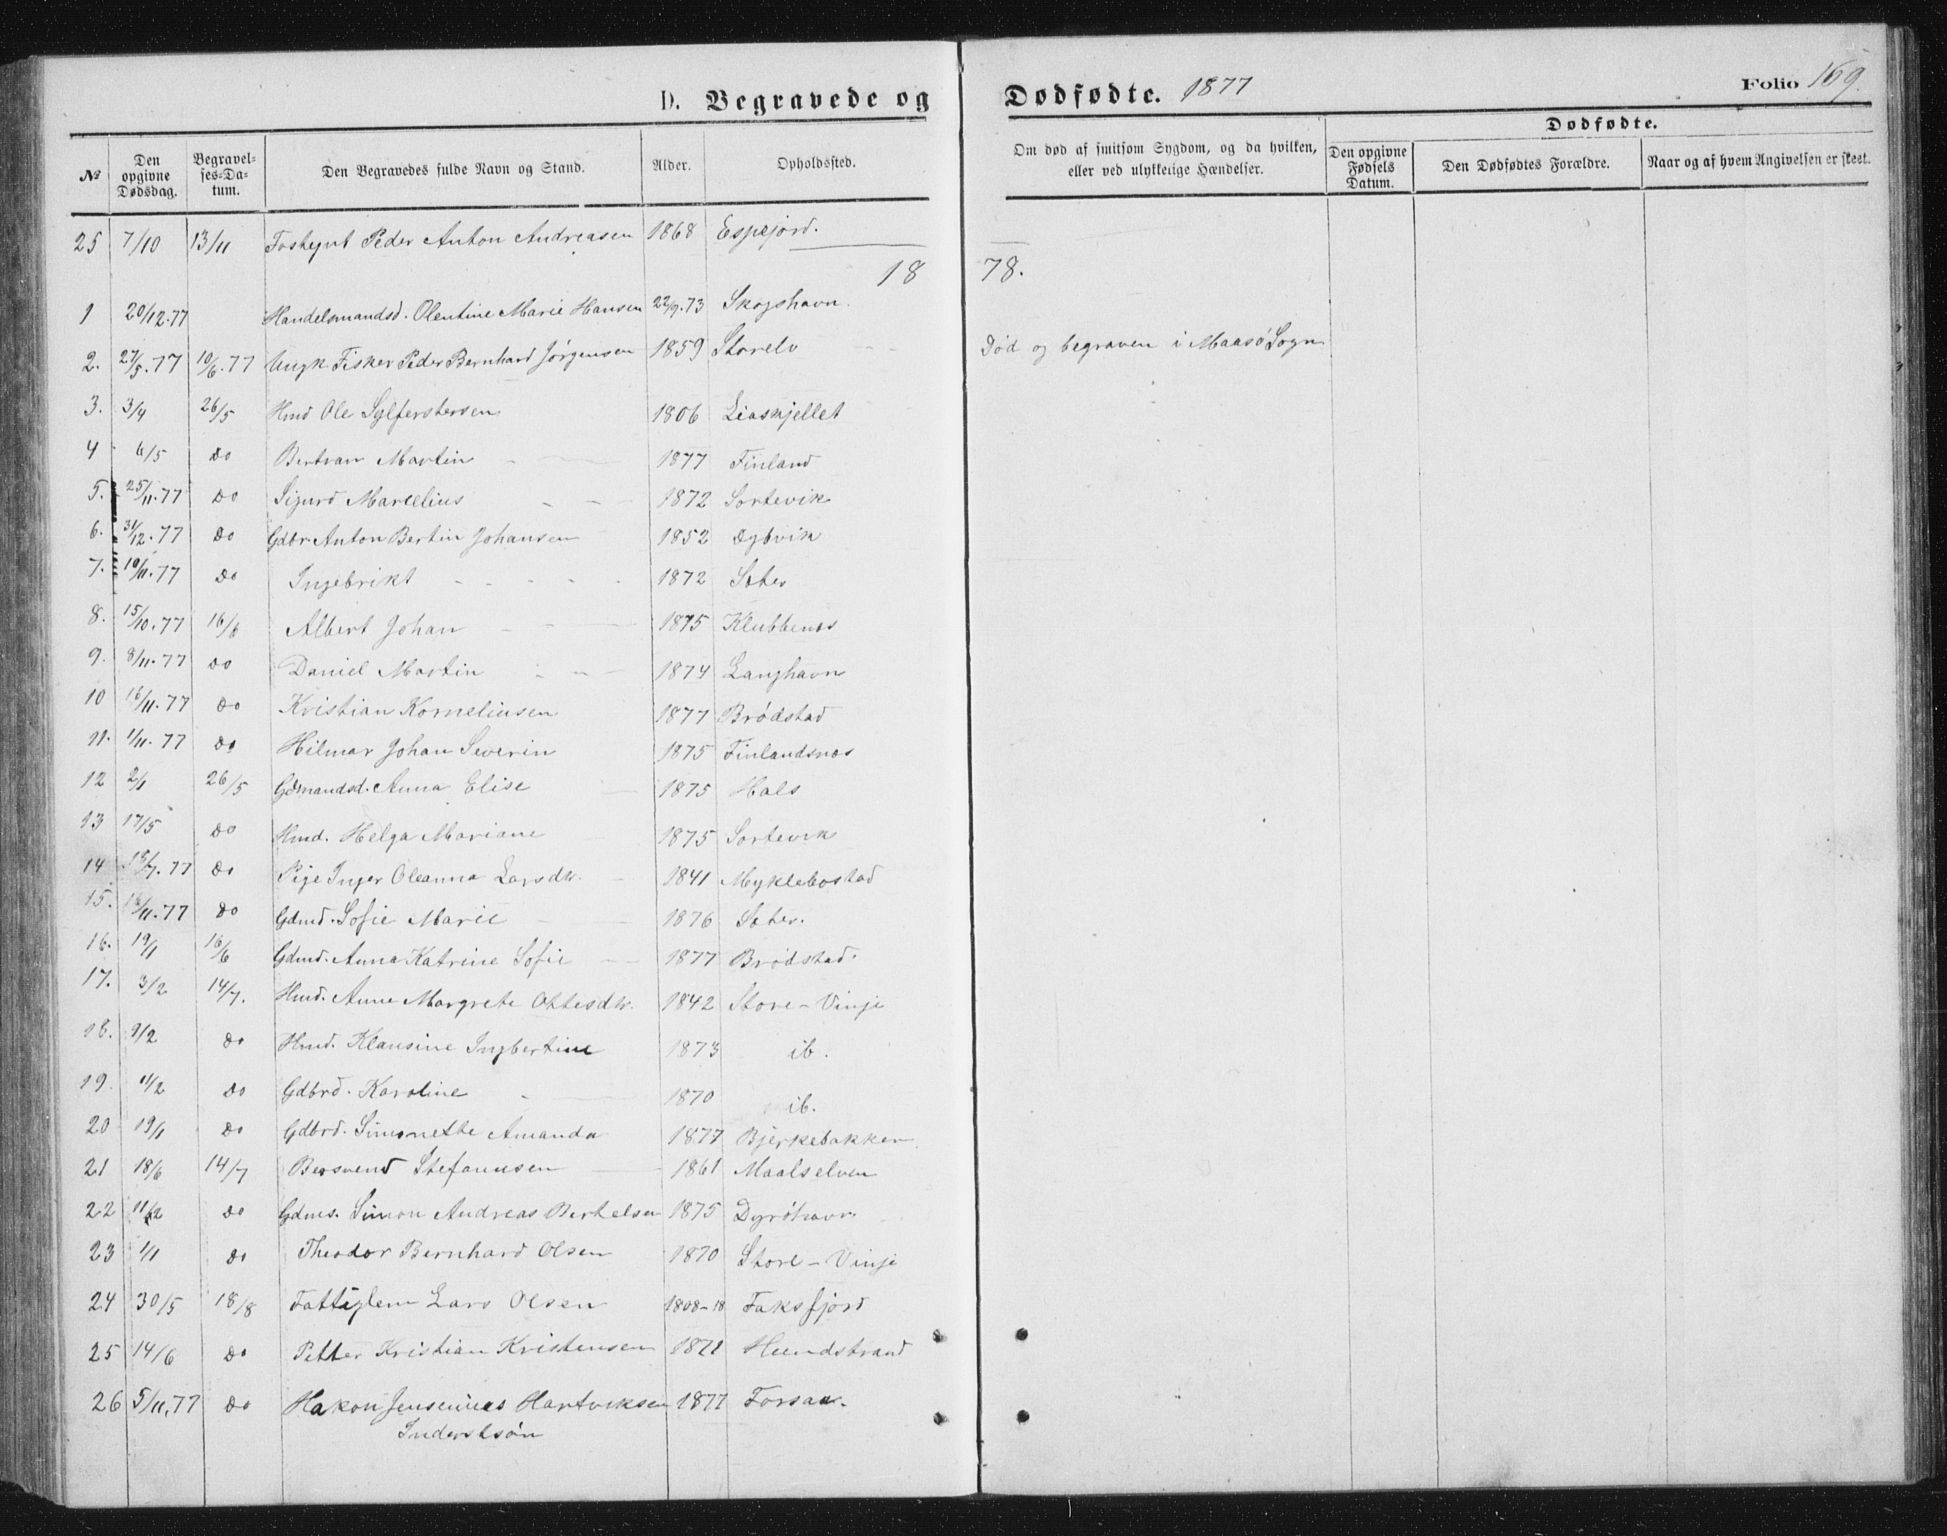 D. Begravede og Dødfødte. 1877 Folio 169.
№ Den opgivne Dødsdag. Begravelses-Datum. Den Begravedes fulde Navn og Stand. Alder. Opholdssted. Om død af smitsom Sygdom, og da hvilken, eller ved ulykkelige Hændelser. Dødfødte. Den opgivne Fødsels Datum. Den Dødfødtes Forældre. Naar og af hvem Angivelsen er skeet.
25 7/10 13/11 Peder Anton Andreasen 1868 Espejord.
18 78.
1 20/12.77 Handelsmandsd. Olentine Marie Hansen 22/9.73 Skogshavn
2. 27/5.77 10/6.77 Ungk Fisker Peder Bernhard Jørgensen 1859 Storelv Død og begraven i Maasø Sogn
3. 3/4 26/5 Hmd Ole Sylfestersen 1806 Liaskjellet
4 6/5 Do Bertran Martin 1877 Finland
5. 25/11.77 Do Sigurd Marcelius 1872 Sortevik
6. 31/12.77 Do Gdbr. Anton Bertin Johansen 1852 Dybvik
7. 10/11.77 Do Ingebrikt 1872 Seter
8. 15/10.77 16/6 Albert Johan 1875 Klubbenes
9. 8/11.77 Do Daniel Martin 1874 Langhavn
10 16/11.77 Do Kristian Korneliusen 1877 Brødstad
11. 1/11.77 Do Hilmar Johan Severin 1875 Finlandsnes
12 2/1 26/5 Gdmandsd. Anna Elise 1875 Hals
13 17/5 Do Hmd. Helga Mariane 1875 Sortevik
14 Do Pige Inger Oleanna Larsdtr. 1841 Myklebostad
15. 16/11.77 Do Gdmd. Sofie Marie 1876 Seter.
16. 19/1 16/6 Gdmd. Anna Katrine Sofie 1877 Brødstad.
17. 3/2 14/7. Hmd. Anne Margrete Ottesdtr. 1842 Store-Vinje
18. 9/2 Do Hmd. Klausine Ingbertine 1873 ib.
19. 11/2 Do Gdbrd. Karoline 1870 ib.
20 19/1 Do Gdbrd. Simonette Amanda 1877 Bjerkebakken
21 18/6 14/7 Bersvend Stefanusen 1861 Maalselven
22 11/2 Do Gdms. Simon Andreas Bertelsen 1875 Dyrøhavn
23 1/1 Do Theodor Bernhard Olsen 1870 Store-Vinje
24 30/5 18/8 Fattiglem Lars Olsen 1808-18 Faksfjord
25 14/6 Do Petter Kristian Kristensen 1871 Hundstrand
26 5/11.77 Do Hakon Jensenius Hartviksen 1877 Forsaa.